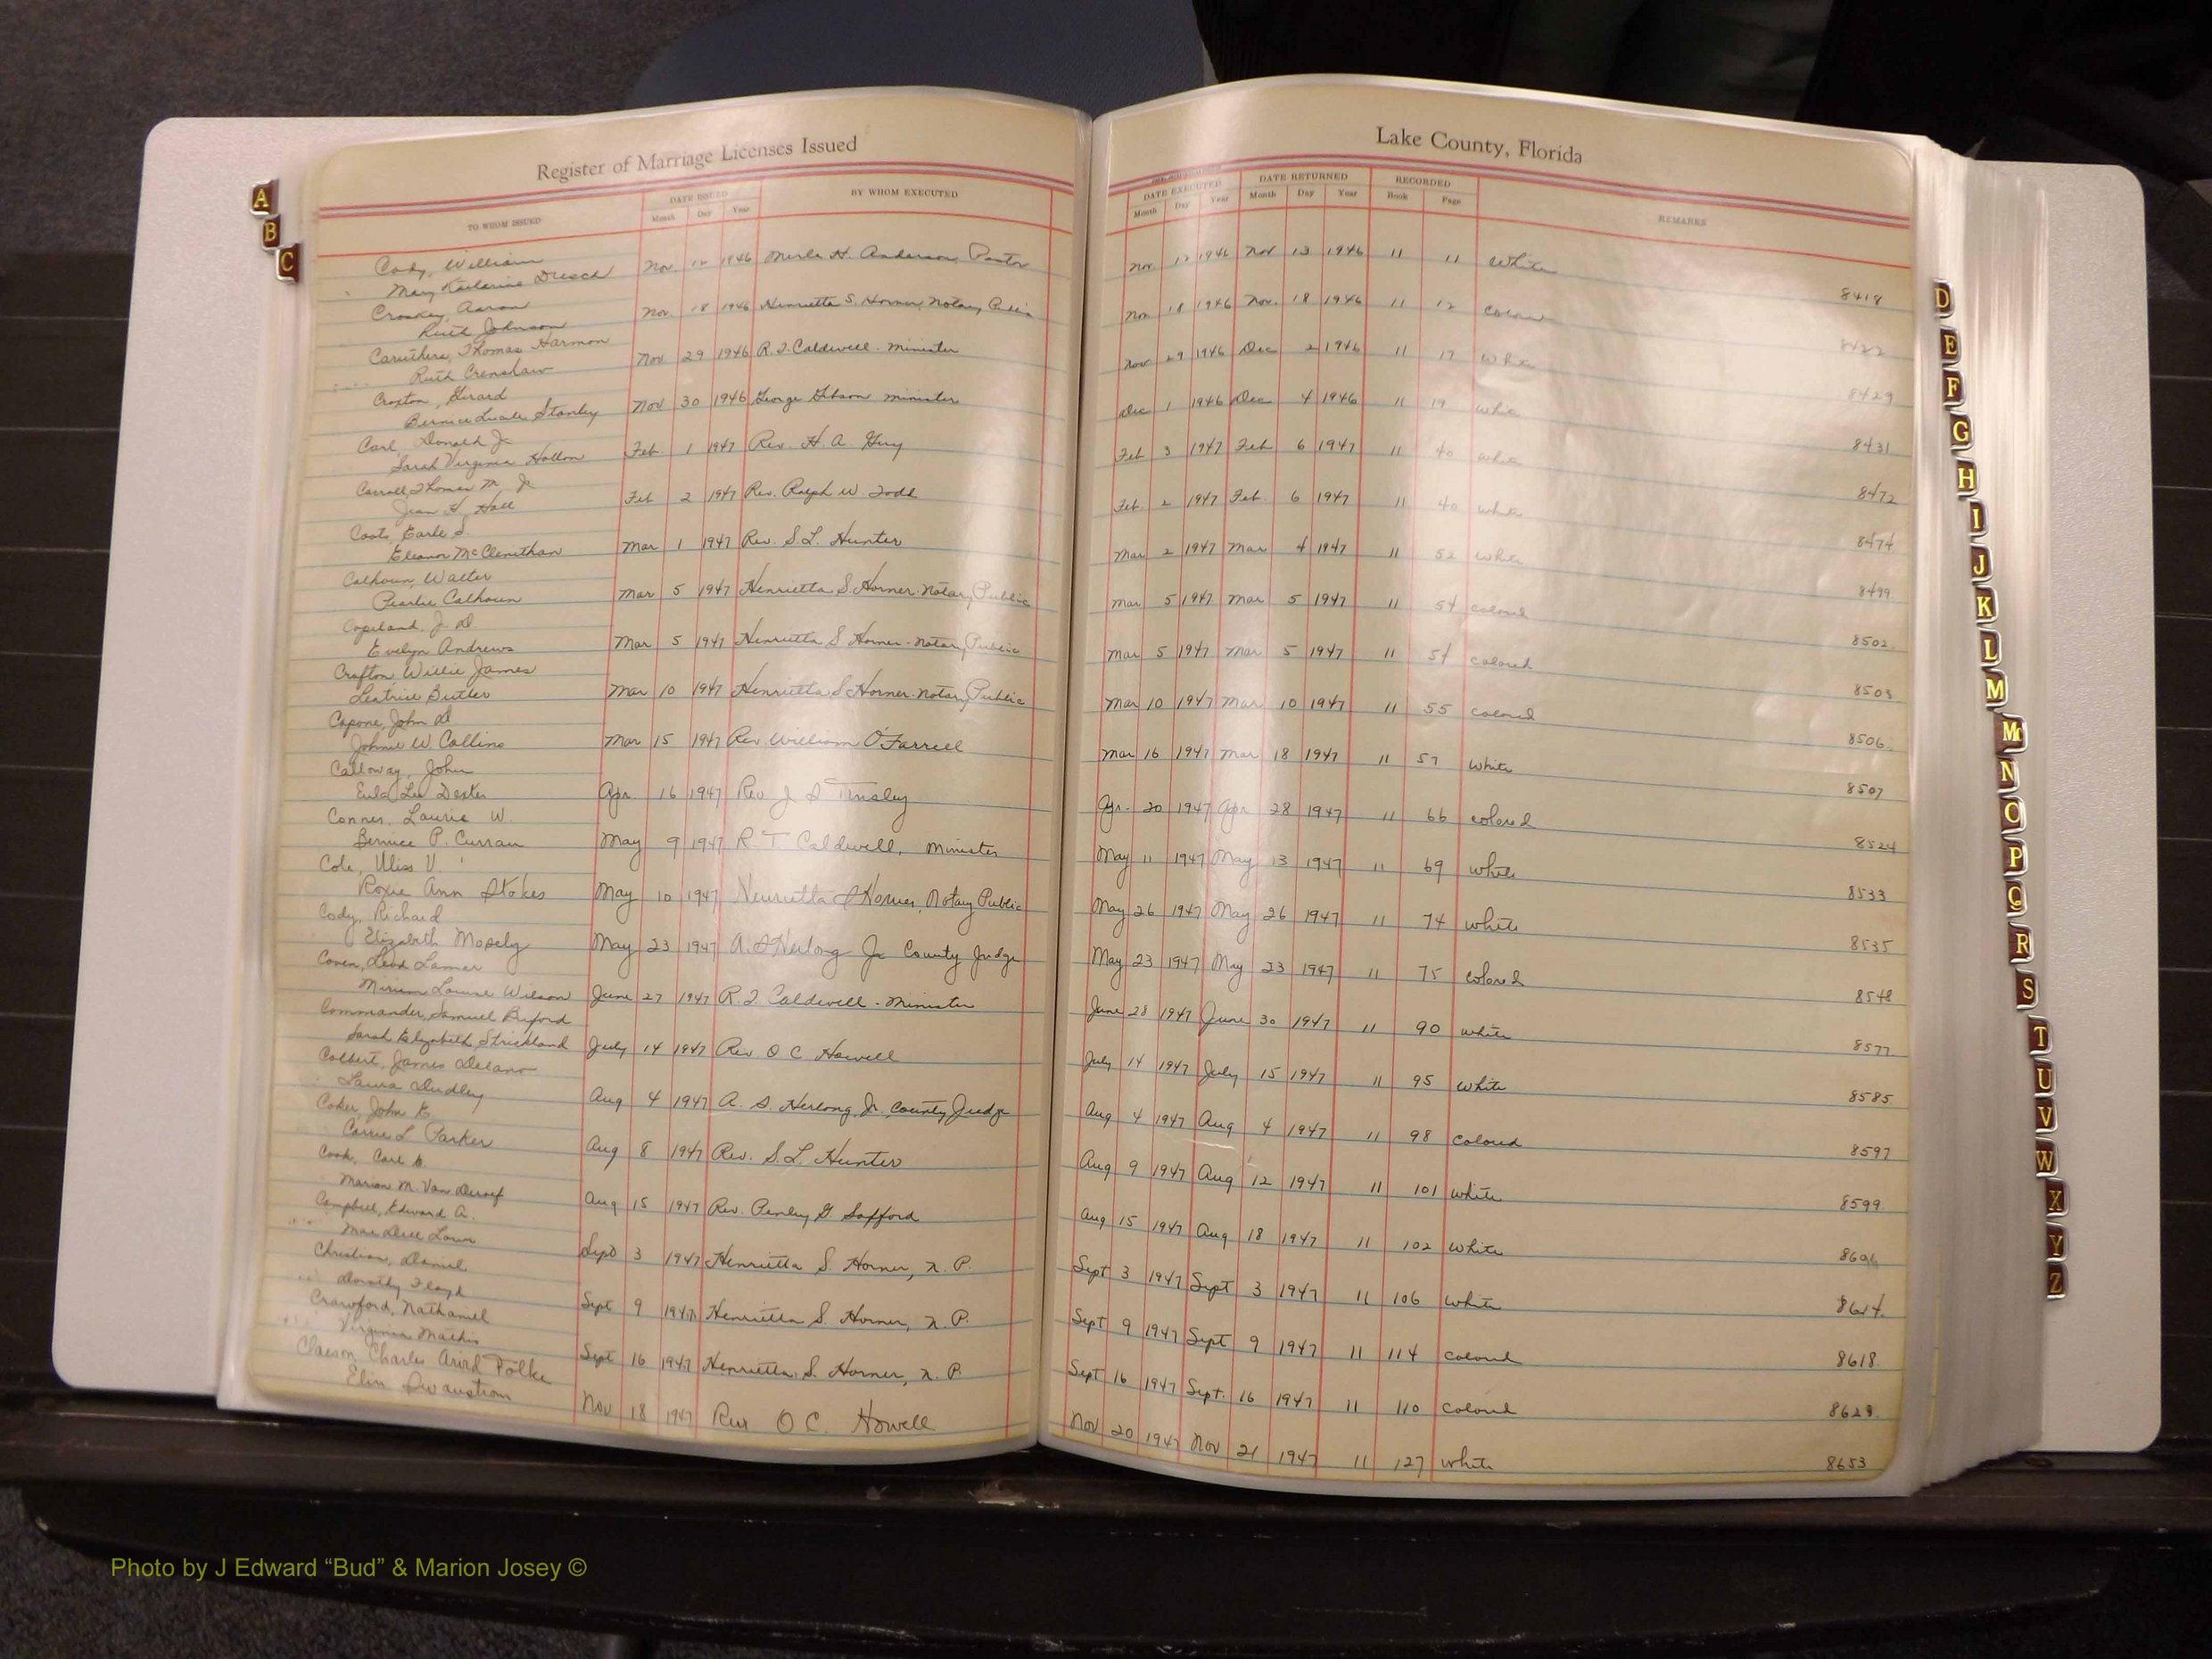 Register of Marriage Licenses Issued
Lake County, Florida
TO WHOM ISSUED
DATE ISSUED
Month Day Year
BY WHOM EXECUTED
DATE EXECUTED
Month Day Year
DATE RETURNED
Month Day Year
RECORDED
Book Page
REMARKS
Cody, William
Mary Katherine Dresch Nov. 12 1946 Merle H. Anderson, Pastor Nov 12 1946 Nov 13 1946 11 11 White 8418
Croskey, Aaron
Ruth Johnson Nov. 18 1946 Henrietta S. Horner, Notary Public Nov 18 1946 Nov. 18 1946 11 12 Colored 8422
Caruthers, Thomas Harmon
Ruth Crenshaw Nov 29 1946 R. T. Caldwell - Minister Nov 29 1946 Dec 2 1946 11 17 White 8429
Croxton, Girard
Bernice Lucile Stanley Nov 30 1946 George Gibson minister Dec 1 1946 Dec 4 1946 11 19 White 8431
Carl, Donald Jr
Sarah Virginia Holton Feb 1 1947 Rev. H. A. Guy Feb 3 1947 Feb 6 1947 11 40 white 8472
Carroll, Thomas M. Jr
Jean H. Hall Feb 2 1947 Rev. Ralph W. Todd Feb. 2 1947 Feb. 6 1947 11 40 white 8474
Coats, Earle S.
Eleanor McClenithan Mar 1 1947 Rev. S. L. Hunter Mar 2 1947 Mar 4 1947 11 52 white 8499
Calhoun, Walter
Pearlie Calhoun Mar 5 1947 Henrietta S. Horner - Notary Public Mar 5 1947 Mar 5 1947 11 54 colored 8502
Copeland, J. D.
Evelyn Andrews Mar 5 1947 Henrietta S Horner - Notary Public Mar 5 1947 Mar 5 1947 11 54 colored 8503
Crafton, Willie James
Leatrice Butler Mar 10 1947 Henrietta S Horner - Notary Public Mar 10 1947 Mar 10 1947 11 55 colored 8506
Capone, John D
Johnie W Collins Mar 15 1947 Rev. William O'Farrell Mar 16 1947 Mar 18 1947 11 57 White 8507
Calloway, John
Eula Lee Dexter Apr. 16 1947 Rev J. S Tinsley Apr. 20 1947 Apr. 28 1947 11 66 colored 8524
Conner, Laurie W.
Bernice P. Curran May 9 1947 R. T. Caldwell, Minister May 11 1947 May 13 1947 11 69 white 8533
Cole, Uliss V.
Roxie Ann Stokes May 10 1947 Henrietta S Horner, Notary Public May 26 1947 May 26 1947 11 74 white 8535
Cody, Richard
Elizabeth Mosely May 23 1947 A. S Herlong Jr County Judge May 23 1947 May 23 1947 11 75 colored 8548
Coven, Lamar
Miriam Louise Wilson June 27 1947 R. T. Caldwell - Minister June 28 1947 June 30 1947 11 90 white 8577
Commander, Samuel Buford
Sarah Elizabeth Strickland July 14 1947 Rev. O C Howell July 14 1947 July 15 1947 11 95 white 8585
Colbert, James Delano
Laura Dudley Aug 4 1947 A. S. Herlong, Jr. County Judge Aug 4 1947 Aug 4 1947 11 98 Colored 8597
Coker, John E.
Carrie L Parker Aug 8 1947 Rev. S. L. Hunter Aug 9 1947 Aug 12 1947 11 101 White 8599
Cook, Carl
Marion M. Van Aug 15 1947 Rev. G. Safford Aug 15 1947 Aug 18 1947 11 102 White
Campbell, Edward A.
Mae Dell Sept 3 1947 Henrietta S. Horner, N. P. Sept 3 1947 Sept 3 1947 11 106 White 8614
Christian, Daniel
Dorothy Floyd Sept 9 1947 Henrietta S. Horner, N. P. Sept 9 1947 Sept 9 1947 11 114 Colored 8618
Crawford, Nathaniel
Virginia Mathis Sept 16 1947 Henrietta S. Horner, N. P. Sept 16 1947 Sept. 16 1947 11 110 Colored 8623
Claeson, Charles Arvid Folke
Elin Swanstrom Nov 18 1947 Rev O C. Howell Nov 20 1947 Nov 21 1947 11 127 White 8653
A
B
C
D
E
F
G
H
I
J
K
L
M
Mc
N
O
P
Q
R
S
T
U
V
W
X
Y
Z
Photo by J Edward “Bud” & Marion Josey ©